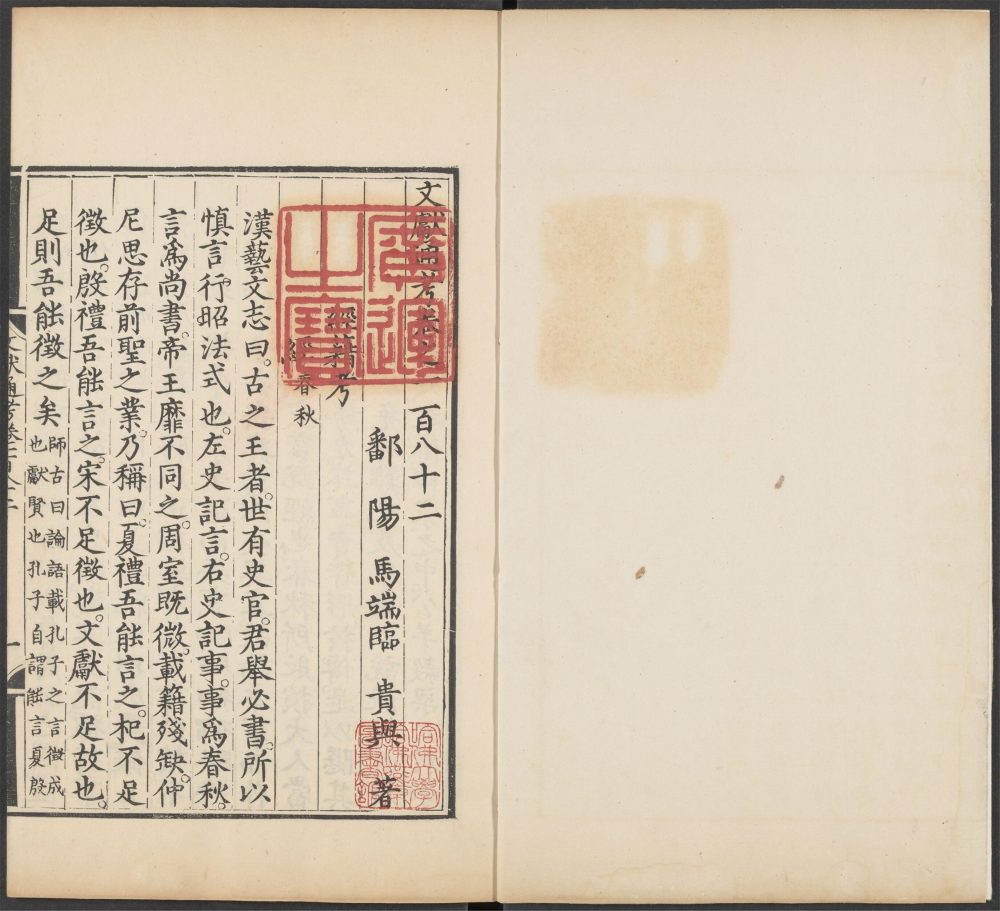 文獻通考卷之一百八十二
鄱陽馬端臨貴與著
經籍考
經 春秋
漢藝文志曰。古之王者。世有史官。君舉必書。所以
慎言行。昭法式也。左史記言。右史記事。事爲春秋。
言爲尚書。帝王靡不同之。周室既微。載籍殘缺。仲
尼思存前聖之業。乃稱曰。夏禮吾能言之。杞不足
徵也。殷禮吾能言之。宋不足徵也。文獻不足故也。
足則吾能徵之矣
師古曰論語載孔子之言徵成
也獻賢也孔子自謂能言夏殷
文獻通考卷一百八十二
一
廣運之寶